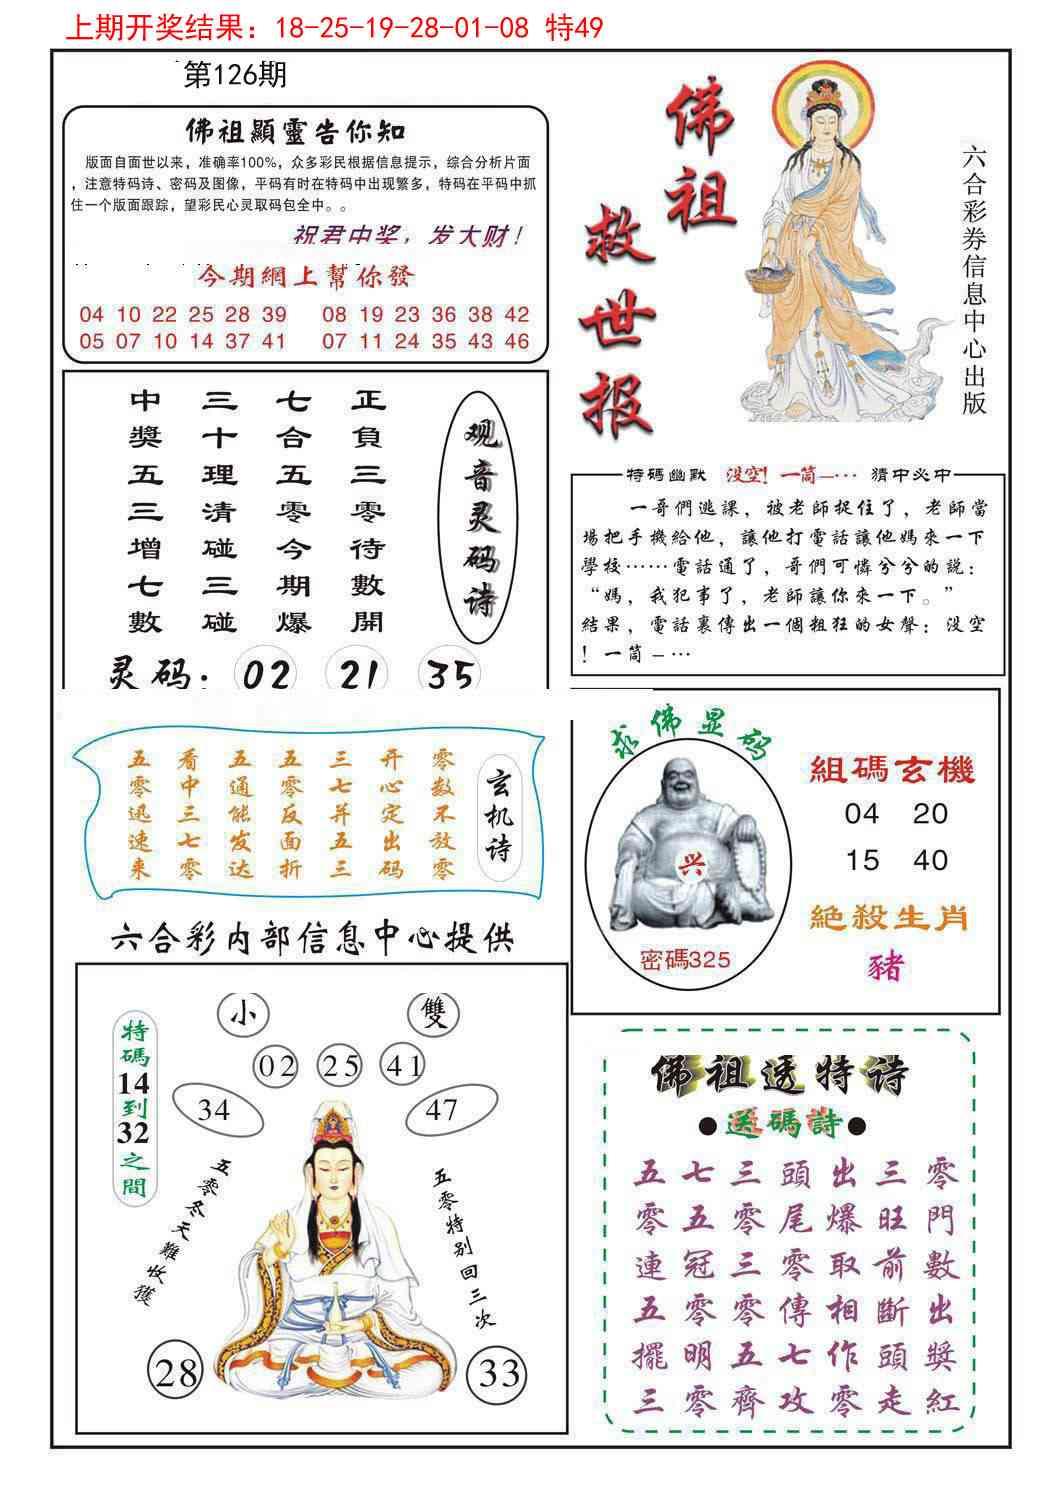 上期开奖结果：18-25-19-28-01-08 特49
第126期
佛祖顯靈告你知
版面自面世以来，准确率100%，众多彩民根据信息提示，综合分析片面
，注意特码诗、密码及图像，平码有时在特码中出现繁多，特码在平码中抓
住一个版面跟踪，望彩民心灵取码包全中。。
祝君中奖，发大财！
今期網上幫你發
04 10 22 25 28 39 08 19 23 36 38 42
05 07 10 14 37 41 07 11 24 35 43 46
佛祖
救世报
六合彩券信息中心出版
观音灵码诗
正負三零待數開
七合五零今期爆
三十理清碰三碰
中獎五三增七數
灵码：02 21 35
特碼幽默 没空！一筒—··· 猜中必中
一哥們逃課，被老師捉住了，老師當
場把手機給他，讓他打電話讓他媽來一下
學校……電話通了，哥們可憐兮兮的説：
“媽，我犯事了，老師讓你來一下。”
結果，電話裏傳出一個粗狂的女聲：没空
！一筒—···
玄机诗
零数不放零
开心定出码
三七并五三
五零反面折
五通能发达
看中三七零
五零迅速来
六合彩内部信息中心提供
求佛显码
兴
密碼325
組碼玄機
04 20
15 40
絶殺生肖
豬
特碼14到32之間
小 雙
02 25 41
34 47
五零冬天難收獲
五零特别回三次
28 33
佛祖透特诗
●送碼詩●
零門數出獎紅
三旺前斷頭走
出爆取相作零
頭尾零傳七攻
三零三零五齊
七五冠零明零
五零連五擺三